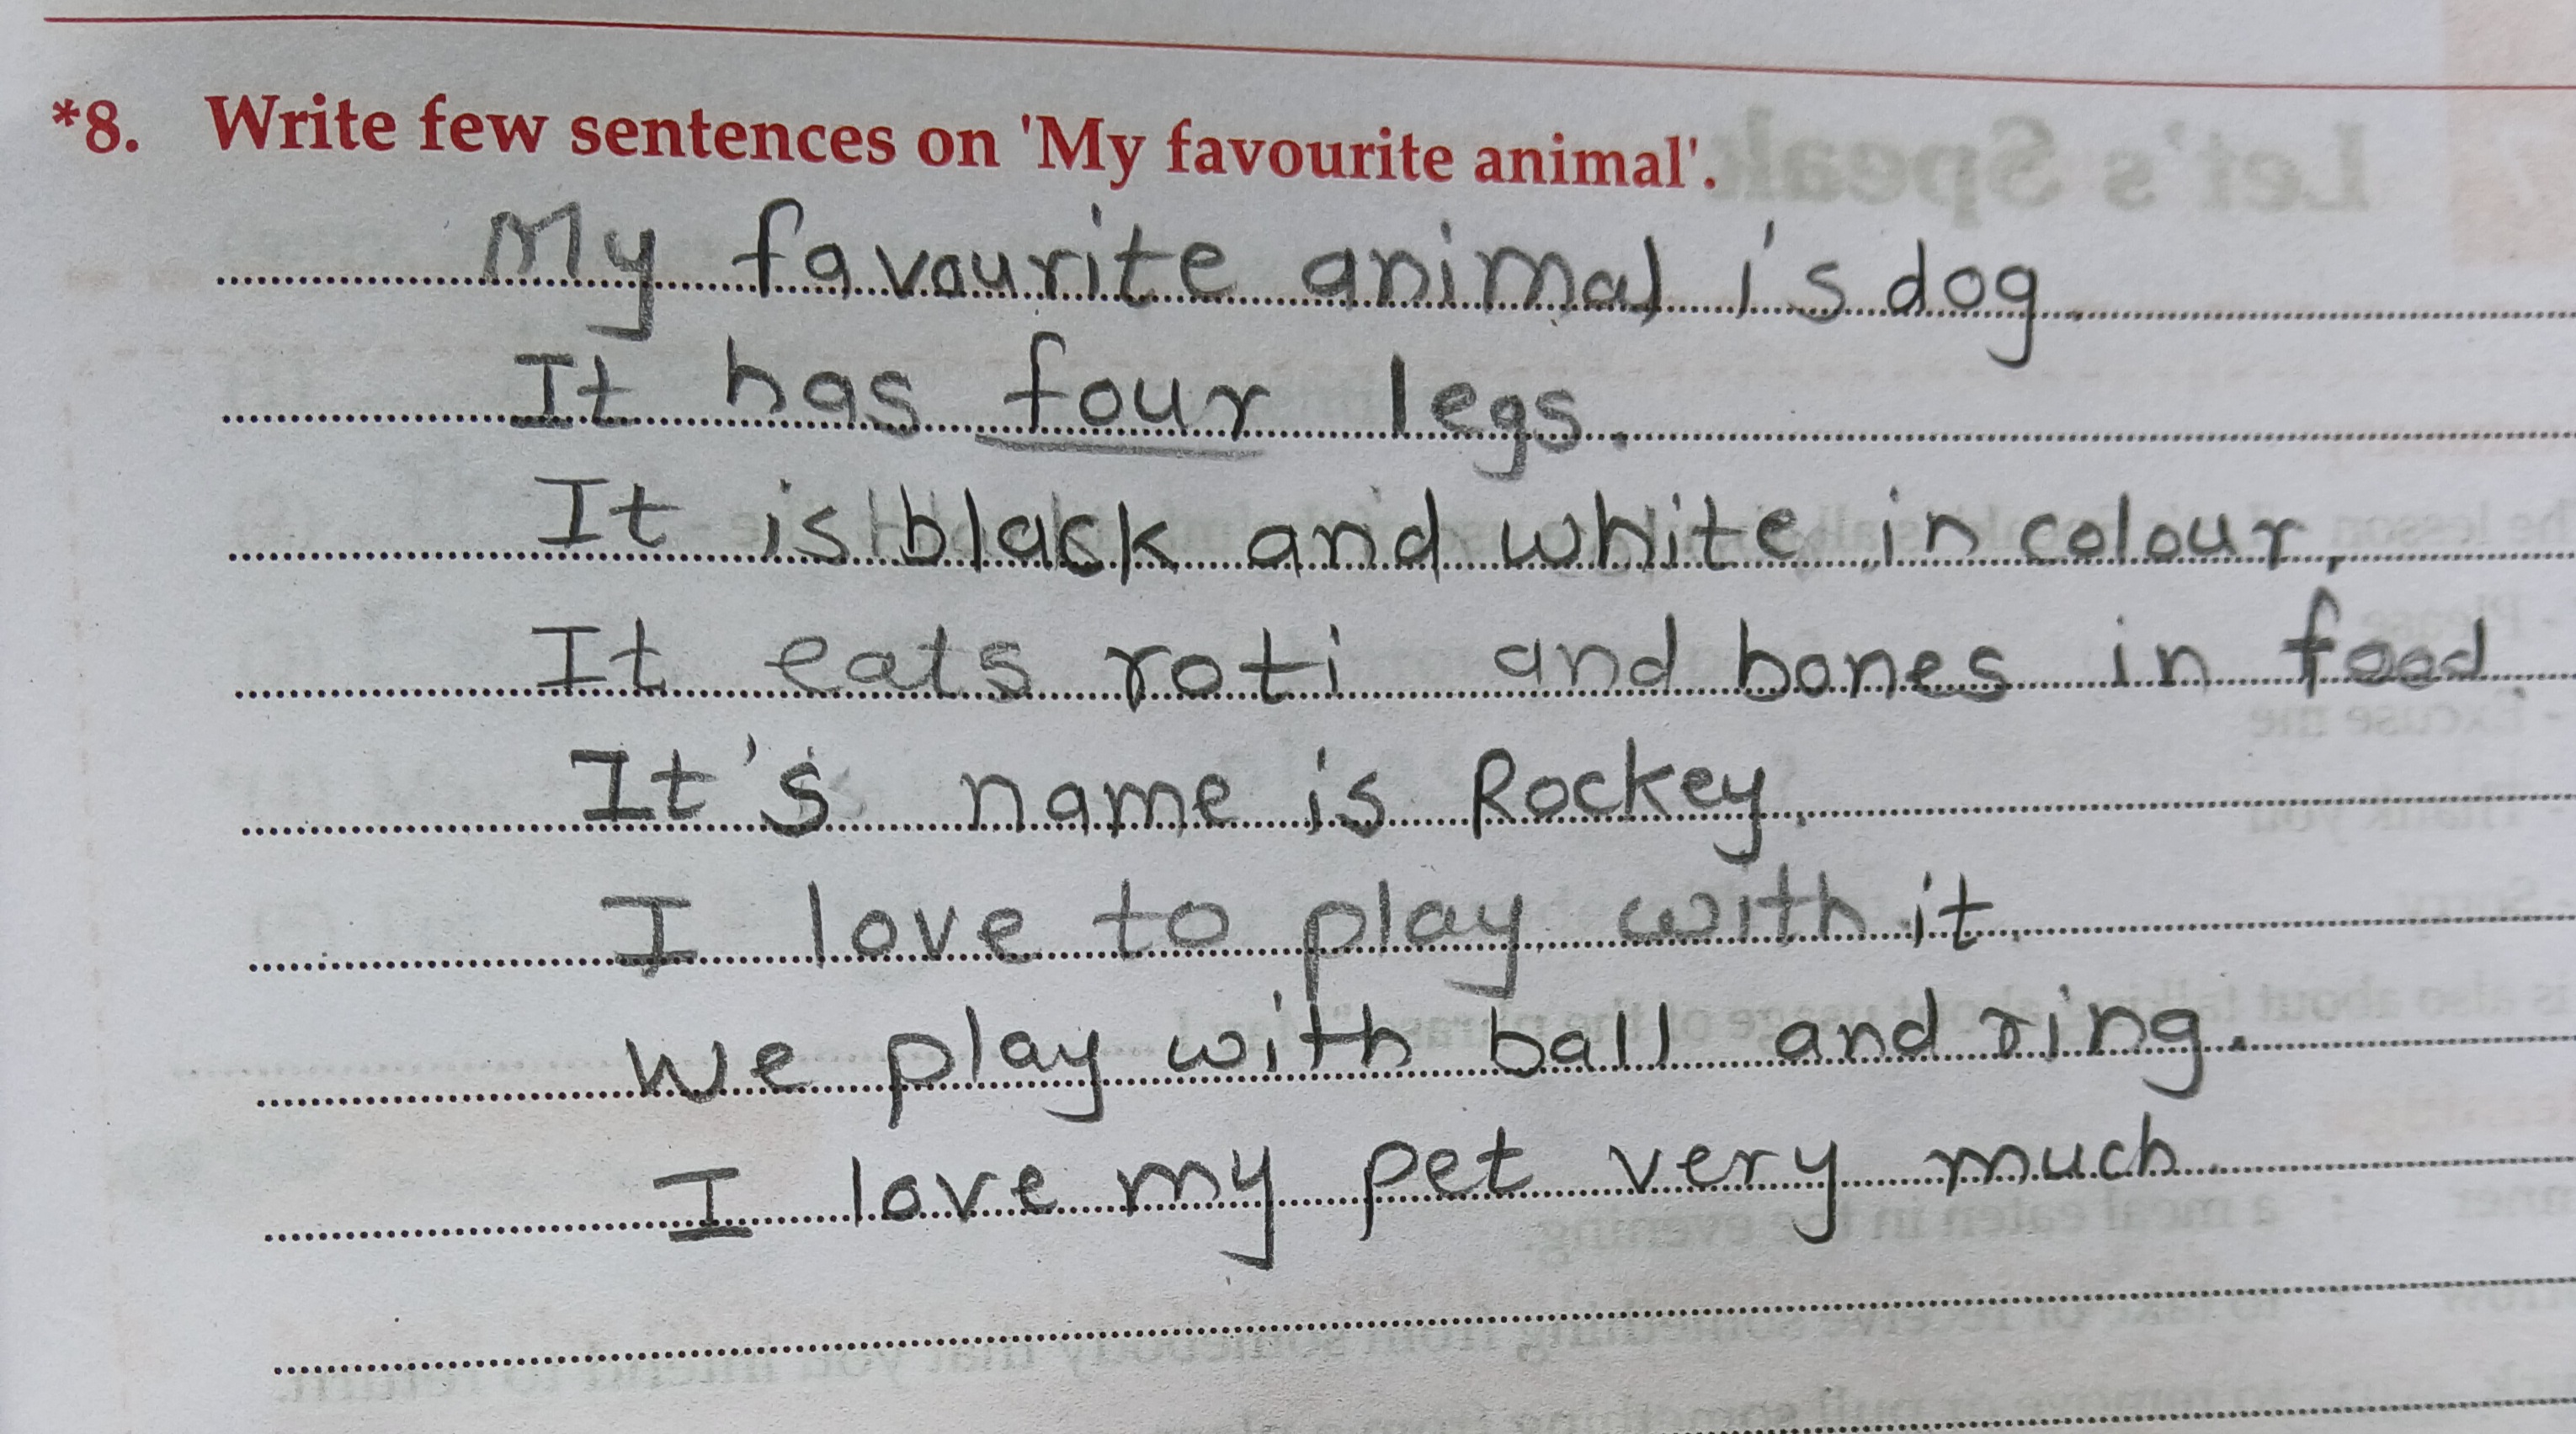 *8. Write few sentences on 'My favourite animal'.
My favourite animal is dog.
It has four legs.
It is black and white in colour.
It eats roti and bones in food.
It's name is Rockey.
I love to play with it.
We play with ball and ring.
I love my pet very much.